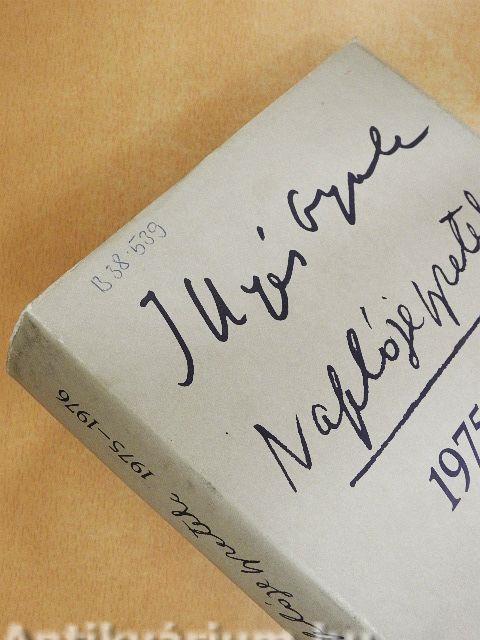 B 38.539
Illyés Gyula
Naplójegyzetek
1975
1975-1976
Antikvárium.hu